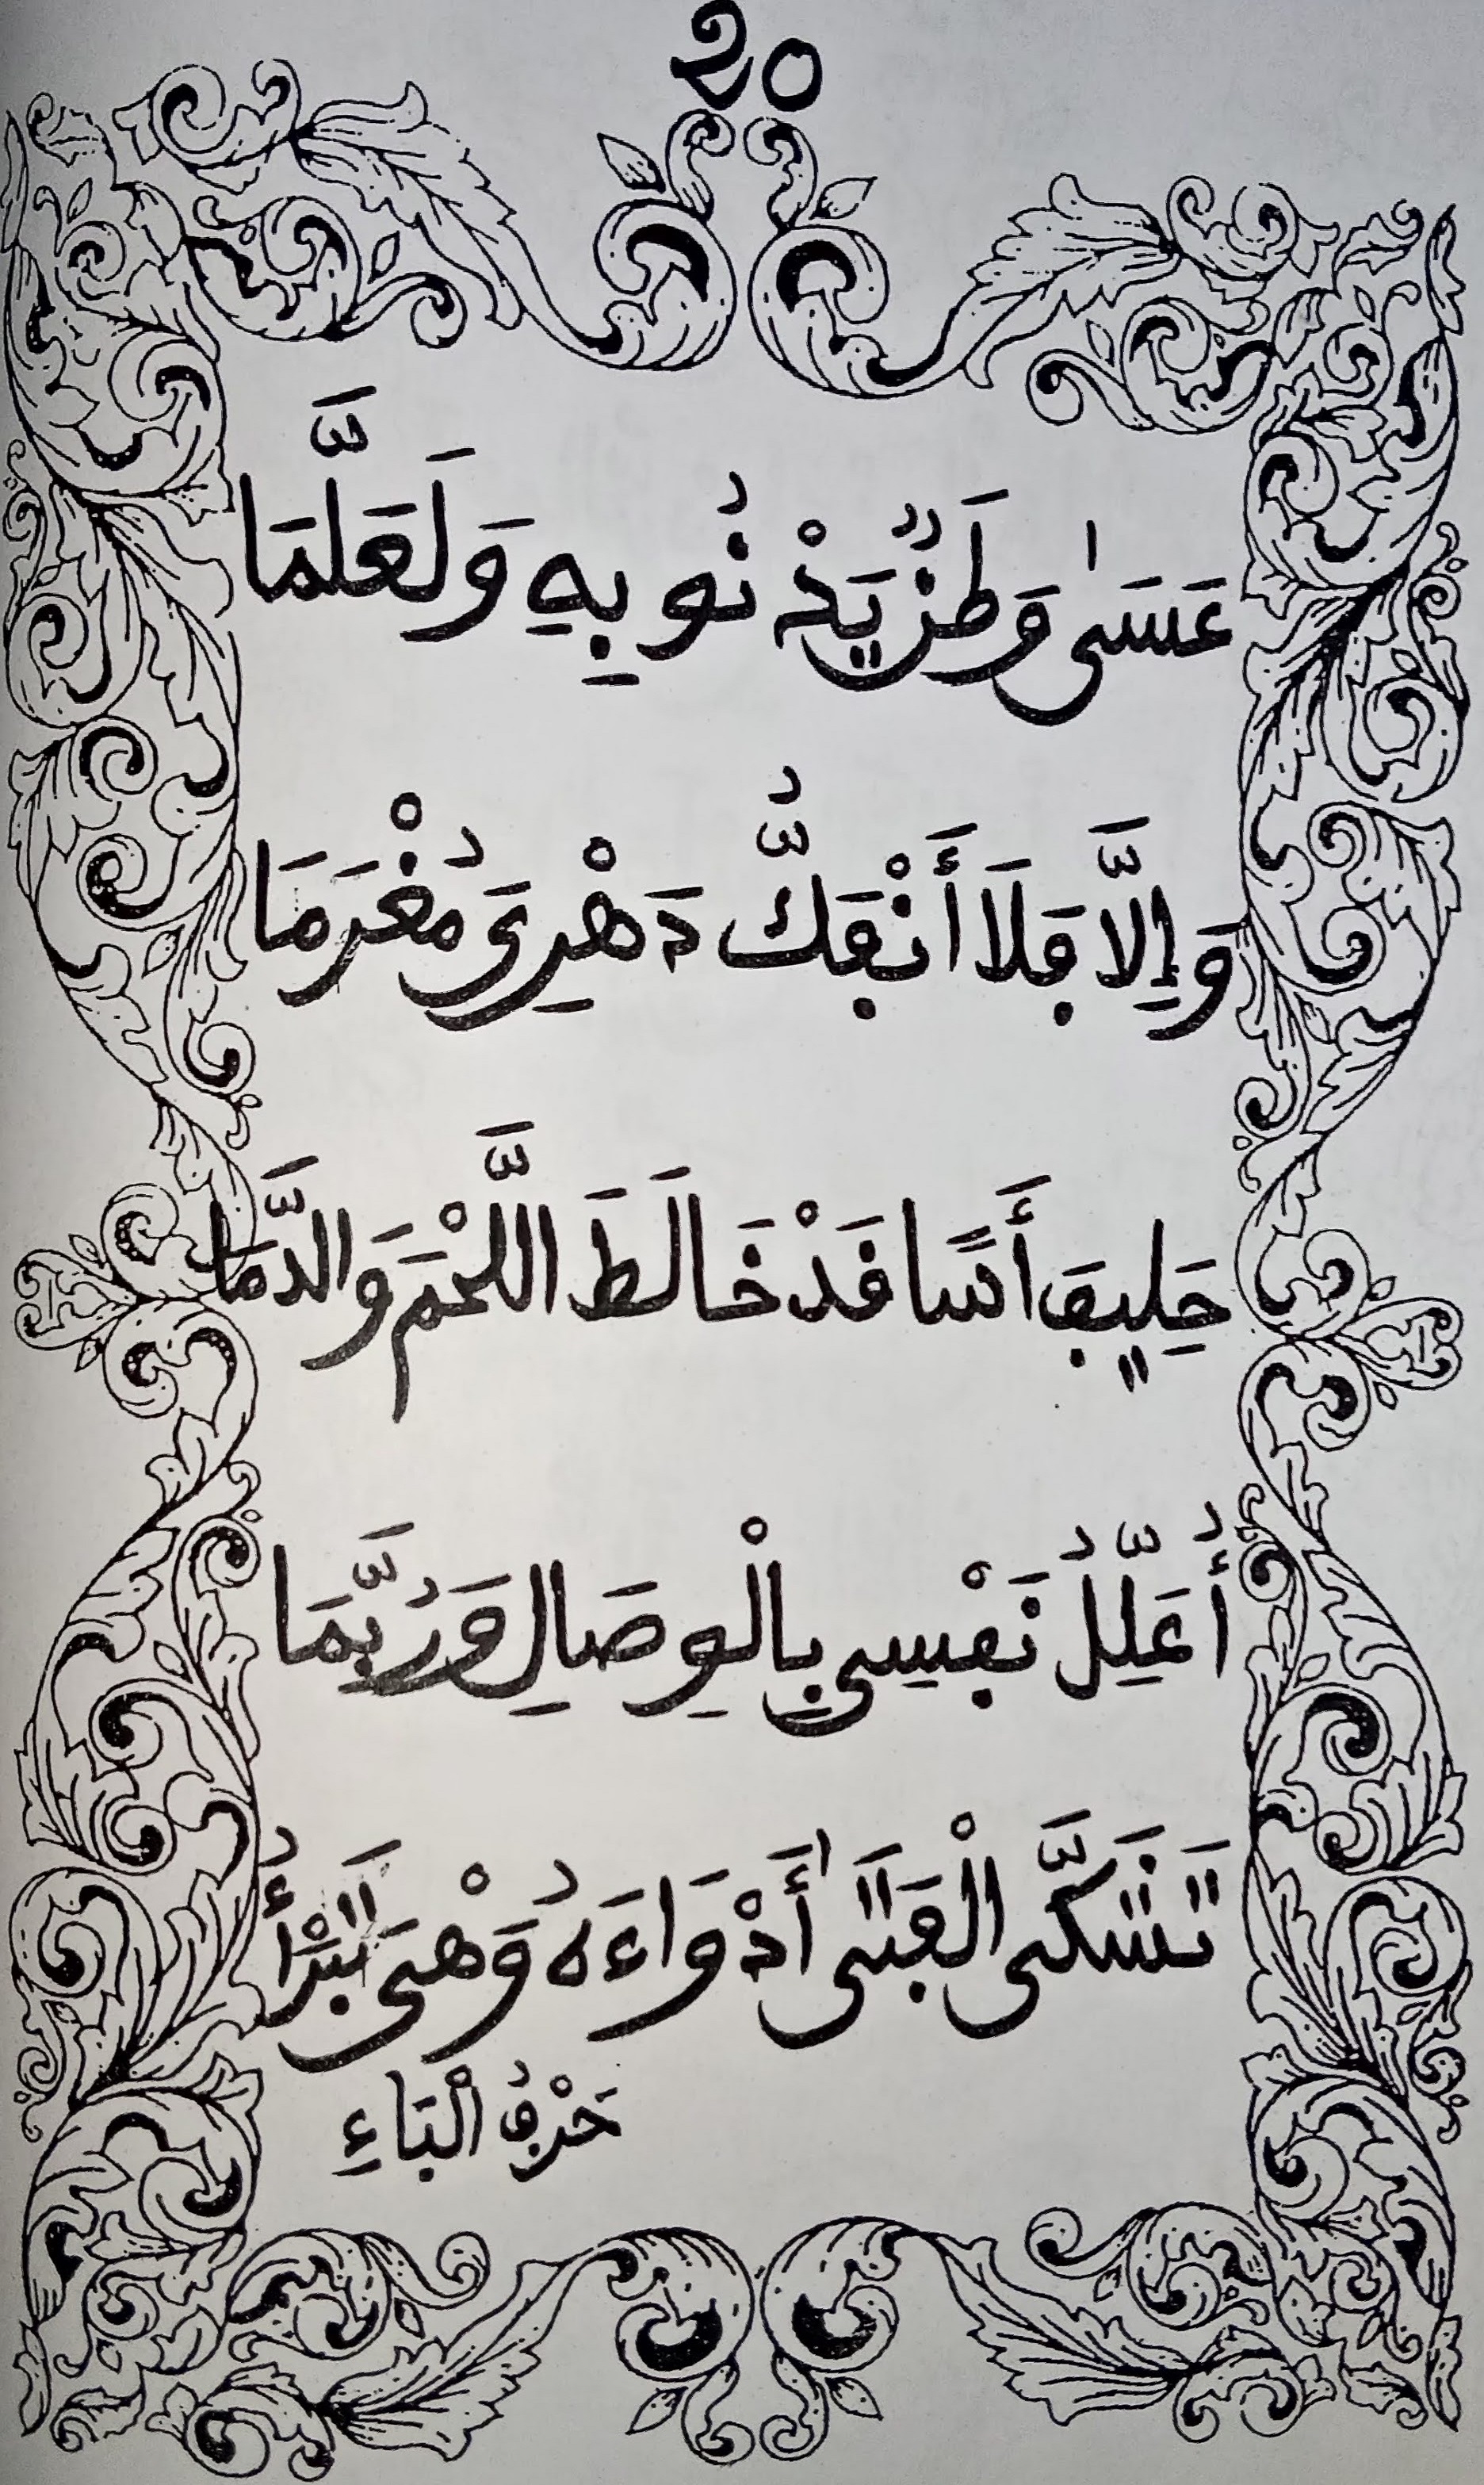 20
عَسَىٰ وَطَنٌ يَدْنُو بِهِ وَلَعَلَّمَا
وَإِلَّا فَلَا أَنْفَكُّ دَهْرِيَ مُغْرَمَا
حَلِيفَ أَسًا قَدْ خَالَطَ اللَّحْمَ وَالدَّمَا
أُعَلِّلُ نَفْسِي بِالْوِصَالِ وَرُبَّمَا
تَشَكَّى الْفَتَىٰ أَدْوَاءَهُ وَهْيَ تَبْرَأُ
حَرْفُ الْبَاءِ